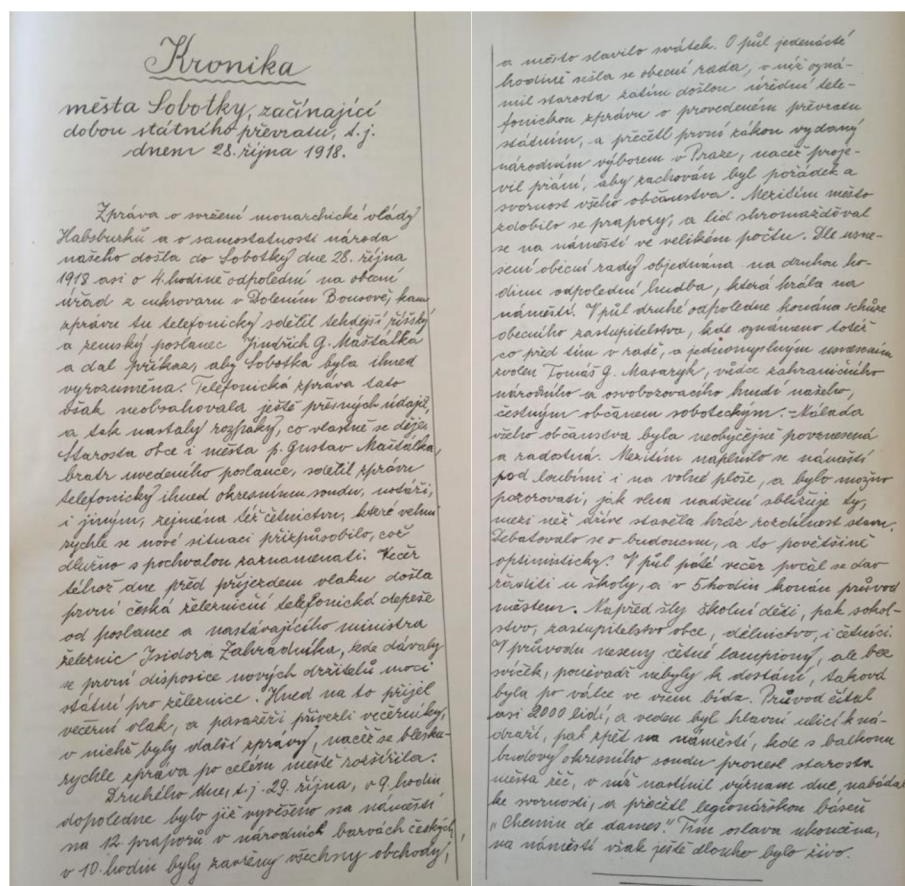 Kronika
města Sobotky, začínající
dobou státního převratu, t. j.
dnem 28. října 1918.
Zpráva o svržení monarchické vlády
Habsburků a o samostatnosti národa
našeho došla do Sobotky dne 28. října
1918 asi o 4. hodině odpolední na obecní
úřad z cukrovaru v Dolením Bousově, kam
zprávu tu telefonicky sdělil tehdejší říšský
a zemský poslanec Jindřich G. Maštálka
a dal příkaz, aby Sobotka byla ihned
vyrozuměna. Telefonická zpráva tato
však neobsahovala ještě přesných údajů,
a tak nastaly rozpaky, co vlastně se děje.
Starosta obce i města p. Gustav Maštálka,
bratr uvedeného poslance, sdělil zprávu
telefonicky ihned okresnímu soudu, notáři,
i jiným, zejména též četnictvu, které velmi
rychle se nové situaci přizpůsobilo, což
dlužno s pochvalou zaznamenati. Večer
téhož dne před příjezdem vlaku došla
první česká železniční telefonická depeše
od poslance a nastávajícího ministra
železnic Isidora Zahradníka, kde dávaly
se první disposice nových držitelů moci
státní pro železnice. Hned na to přijel
večerní vlak, a pasažéři přivezli večerníky,
v nichž byly další zprávy, načež se blesku-
rychle zpráva po celém městě rozšířila.
Druhého dne, t. j. 29. října, v 9. hodin
dopoledne bylo již vyvěšeno na náměstí
na 12 praporů v národních barvách českých,
v 10. hodin byly zavřeny všechny obchody,
a město slavilo svátek. O půl jedenácté
hodině sešla se obecní rada, v níž ozná-
mil starosta zatím došlou úřední tele-
fonickou zprávu o provedeném převratu
státním, a přečetl první zákon vydaný
národním výborem v Praze, načež proje-
vil přání, aby zachován byl pořádek a
svornost všeho občanstva. Mezitím město
zdobilo se prapory, a lid shromažďoval
se na náměstí ve velikém počtu. Dle usne-
sení obecní rady objednána na druhou ho-
dinu odpolední hudba, která hrála na
náměstí. V půl druhé odpoledne konána schůze
obecního zastupitelstva, kde oznámeno totéž
co před tím v radě, a jednomyslným usnesením
zvolen Tomáš G. Masaryk, vůdce zahraničního
národního a osvobozovacího hnutí našeho,
čestným občanem soboteckým. - Nálada
všeho občanstva byla neobyčejně povznesená
a radostná. Mezitím naplnilo se náměstí
pod loubími i na volné ploše, a bylo možno
pozorovati, jak vlna nadšení sbližuje ty,
mezi něž dříve stavěla hráz rozdílnost stavu.
Debatovalo se o budoucnu, a to povětšině
optimisticky. V půl páté večer počal se dav
řaditi u školy, a v 5 hodin konán průvod
městem. Napřed šly školní děti, pak sokol-
stvo, zastupitelstvo obce, dělnictvo, i četníci.
V průvodu neseny četné lampiony, ale bez
svíček, poněvadž nebyly k dostání, taková
byla po válce ve všem bída. Průvod čítal
asi 2000 lidí, a veden byl hlavní ulicí k ná-
draží, pak zpět na náměstí, kde s balkonu
budovy okresního soudu pronesl starosta
města řeč, v níž nastínil význam dne, nabádal
ke svornosti, a přečetl legionářskou báseň
"Chemin de dames." Tím oslava ukončena,
na náměstí však ještě dlouho bylo živo.